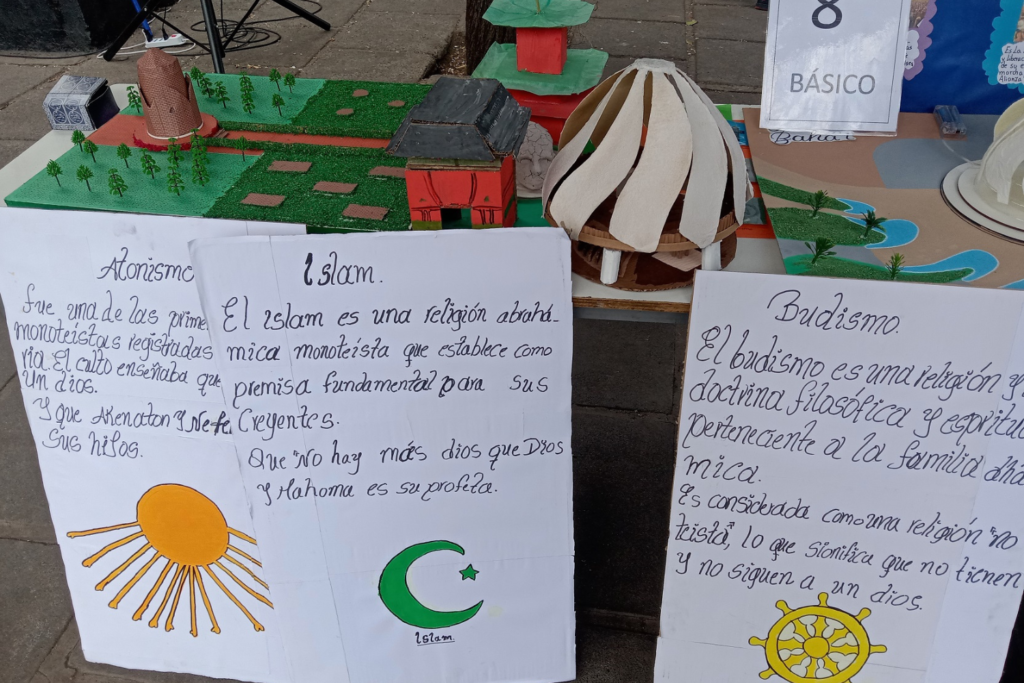 8
BÁSICO
Bahai
Atonismo
fue una de las prime
monoteístas registradas
ria. El culto enseñaba que
Un dios.
Y que Akenaton y Nefe
Sus hijos.
Islam.
El islam es una religión abrahá-
mica monoteísta que establece como
premisa fundamental para sus
Creyentes.
Que "No hay más dios que Dios
y Mahoma es su profeta.
Islam.
Budismo.
El budismo es una religión y
doctrina filosófica y espiritu
perteneciente a la familia dhá
mica.
Es considerada como una religión "no
teista", lo que significa que no tienen
y no siguen a un dios.